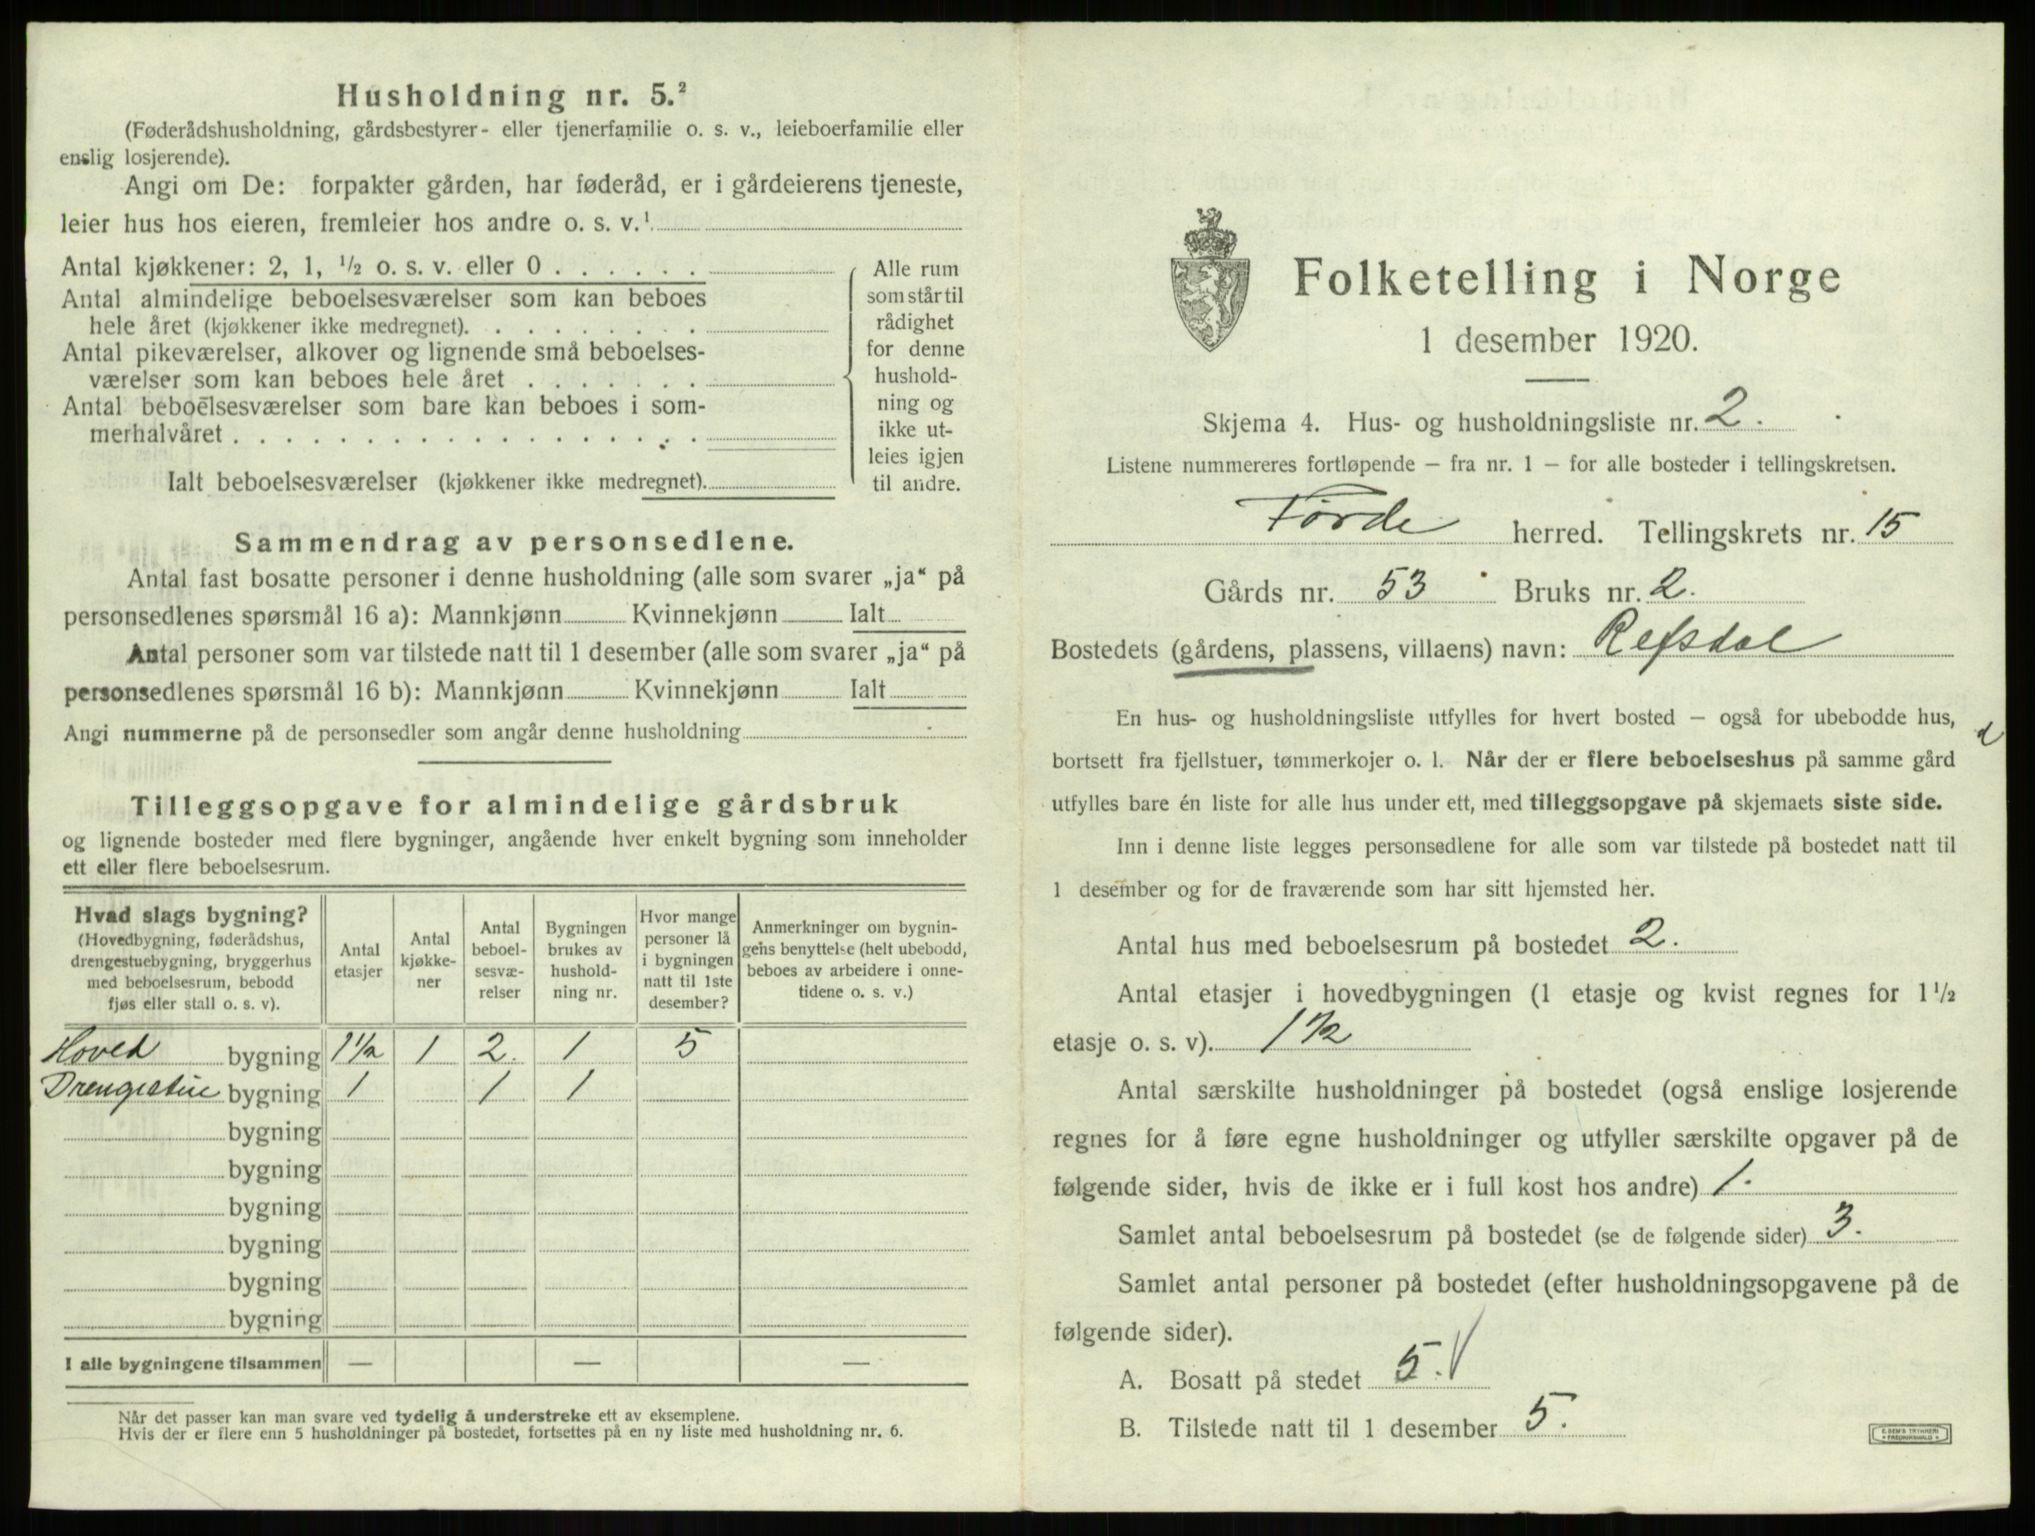 Husholdning nr. 5.²
(Føderådshusholdning, gårdsbestyrer- eller tjenerfamilie o. s. v., leieboerfamilie eller
enslig losjerende).
Angi om De: forpakter gården, har føderåd, er i gårdeierens tjeneste,
leier hus hos eieren, fremleier hos andre o. s. v.¹
Antal kjøkkener: 2, 1, ½ o. s. v. eller 0 . . . . . .
Antal almindelige beboelsesværelser som kan beboes
hele året (kjøkkener ikke medregnet). . . . . . . . .
Antal pikeværelser, alkover og lignende små beboelses-
værelser som kan beboes hele året . . . . . . .
Antal beboelsesværelser som bare kan beboes i som-
merhalvåret . . . . . . . . . . . . . . . . . .
Ialt beboelsesværelser (kjøkkener ikke medregnet).
Alle rum
som står til
rådighet
for denne
hushold-
ning og
ikke ut-
leies igjen
til andre.
Sammendrag av personsedlene.
Antal fast bosatte personer i denne husholdning (alle som svarer „ja“ på
personsedlenes spørsmål 16 a): Mannkjønn Kvinnekjønn Ialt
Antal personer som var tilstede natt til 1 desember (alle som svarer „ja“ på
personsedlenes spørsmål 16 b): Mannkjønn Kvinnekjønn Ialt
Angi nummerne på de personsedler som angår denne husholdning
Tilleggsopgave for almindelige gårdsbruk
og lignende bosteder med flere bygninger, angående hver enkelt bygning som inneholder
ett eller flere beboelsesrum.
Hvad slags bygning?
(Hovedbygning, føderådshus,
drengestuebygning, bryggerhus
med beboelsesrum, bebodd
fjøs eller stall o. s. v).
Antal
etasjer
Antal
kjøkke-
ner
Antal
beboel-
sesvæ-
relser
Bygningen
brukes av
hushold-
ning nr.
Hvor mange
personer lå
i bygningen
natt til 1ste
desember?
Anmerkninger om bygnin-
gens benyttelse (helt ubebodd,
beboes av arbeidere i onne-
tidene o. s. v.)
Hoved bygning 1½ 1 2. 1 5
Drengestue bygning 1 1 1
bygning
bygning
bygning
bygning
bygning
bygning
I alle bygningene tilsammen — — —
Når det passer kan man svare ved tydelig å understreke ett av eksemplene.
Hvis der er flere enn 5 husholdninger på bostedet, fortsettes på en ny liste med husholdning nr. 6.
Folketelling i Norge
1 desember 1920.
Skjema 4. Hus- og husholdningsliste nr. 2.
Listene nummereres fortløpende – fra nr. 1 – for alle bosteder i tellingskretsen.
Førde herred. Tellingskrets nr. 15
Gårds nr. 53 Bruks nr. 2.
Bostedets (gårdens, plassens, villaens) navn: Refsdal
En hus- og husholdningsliste utfylles for hvert bosted – også for ubebodde hus,
d
bortsett fra fjellstuer, tømmerkojer o. l. Når der er flere beboelseshus på samme gård
utfylles bare én liste for alle hus under ett, med tilleggsopgave på skjemaets siste side.
Inn i denne liste legges personsedlene for alle som var tilstede på bostedet natt til
1 desember og for de fraværende som har sitt hjemsted her.
Antal hus med beboelsesrum på bostedet 2.
Antal etasjer i hovedbygningen (1 etasje og kvist regnes for 1½
etasje o. s. v). 1½
Antal særskilte husholdninger på bostedet (også enslige losjerende
regnes for å føre egne husholdninger og utfyller særskilte opgaver på de
følgende sider, hvis de ikke er i full kost hos andre) 1.
Samlet antal beboelsesrum på bostedet (se de følgende sider) 3.
Samlet antal personer på bostedet (efter husholdningsopgavene på de
følgende sider).
A. Bosatt på stedet 5. √
B. Tilstede natt til 1 desember 5.
E. SEM'S TRYKKERI
FREDRIKSHALD